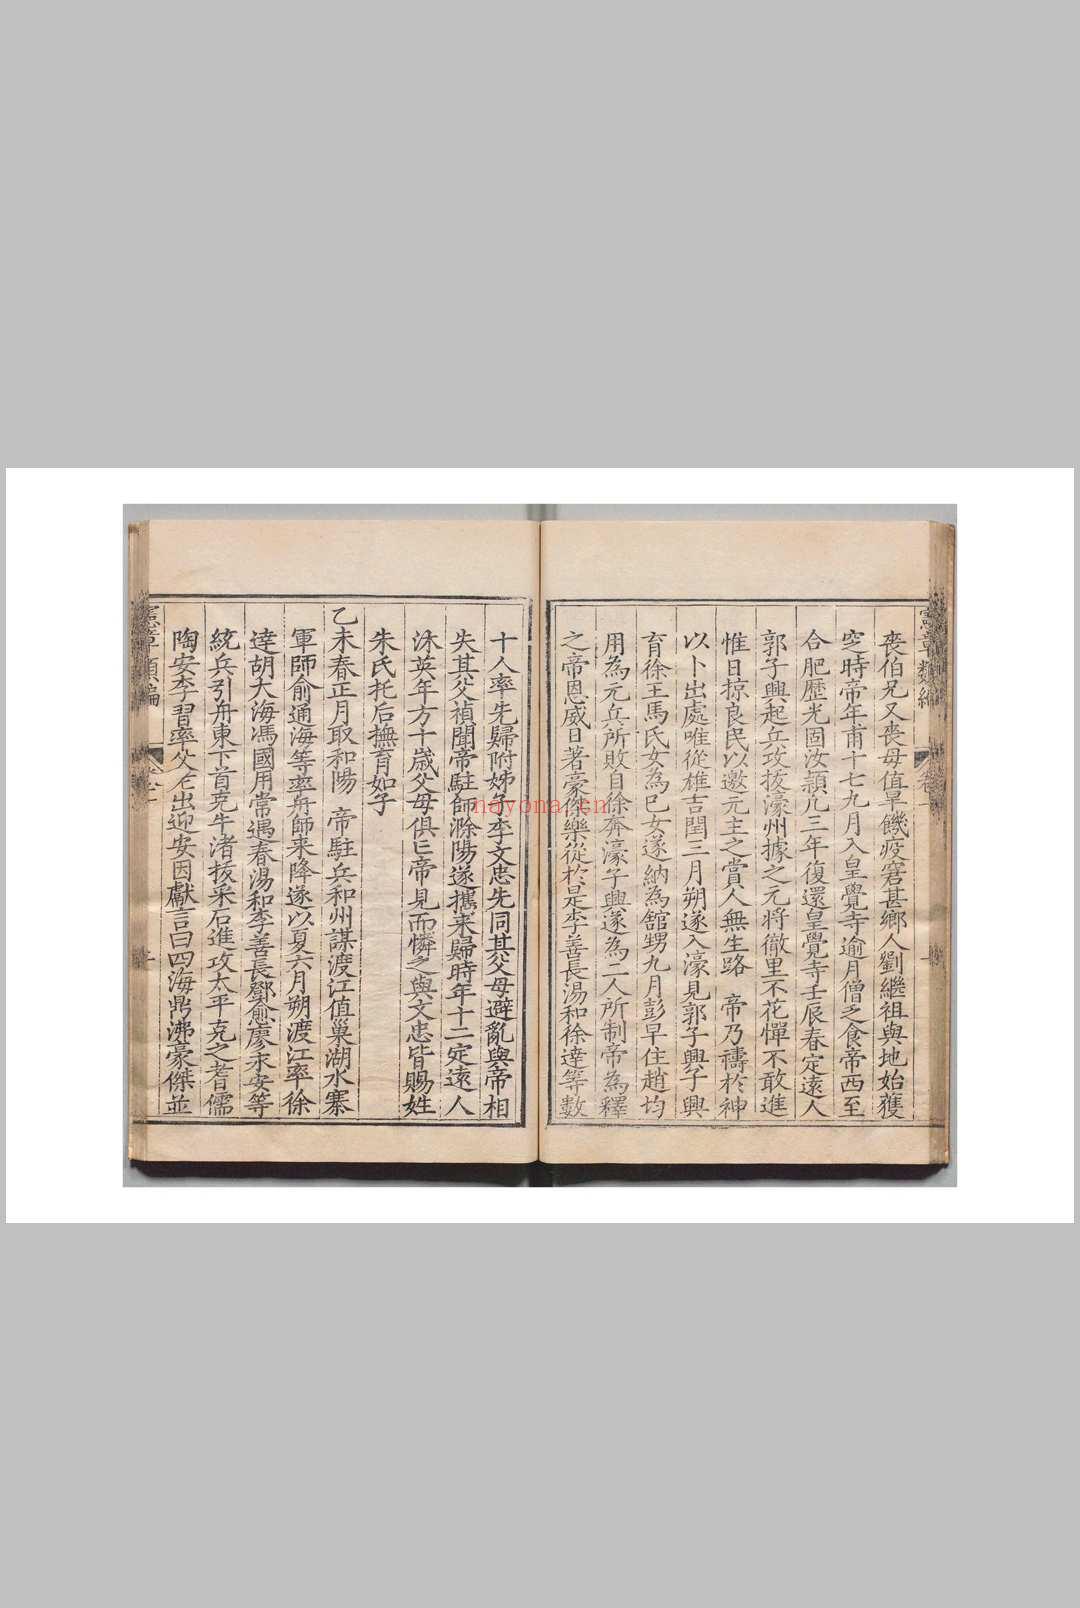 喪伯兄又喪母值旱饑疫窘甚鄉人劉繼祖與地始獲
窆時帝年甫十七九月入皇覺寺逾月僧乏食帝西至
合肥歷光固汝潁凡三年復還皇覺寺壬辰春定遠人
郭子興起兵攻拔濠州據之元將徹里不花憚不敢進
惟日掠良民以邀元主之賞人無生路 帝乃禱於神
以卜出處唯從雄吉閏三月朔遂入濠見郭子興子興
育徐王馬氏女為己女遂納為舘甥九月彭早住趙均
用為元兵所敗自徐奔濠子興遂為二人所制帝為釋
之帝恩威日著豪傑樂從於是李善長湯和徐達等數
十人率先歸附姊子李文忠先同其父母避亂與帝相
失其父禎聞帝駐師滁陽遂攜来歸時年十二定遠人
沐英年方十歲父母俱亡帝見而憐之與文忠皆賜姓
朱氏托后撫育如子
乙未春正月取和陽 帝駐兵和州謀渡江值巢湖水寨
軍師俞通海等率舟師来降遂以夏六月朔渡江率徐
達胡大海馮國用常遇春湯和李善長鄧愈廖永安等
統兵引舟東下首克牛渚拔采石進攻太平克之耆儒
陶安李習率父老出迎安因獻言曰四海鼎沸豪傑並
憲章類編
nayona.cn